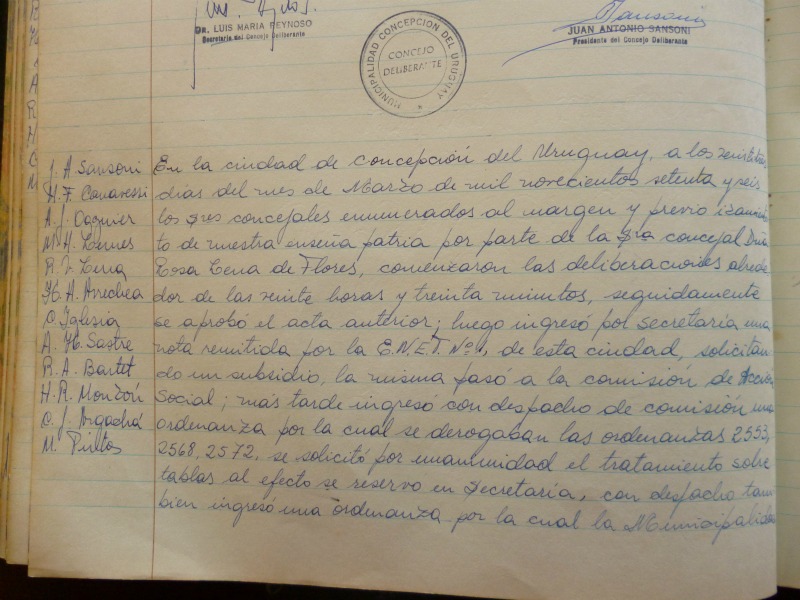 DR. LUIS MARIA REYNOSO
Secretario del Concejo Deliberante
MUNICIPALIDAD CONCEPCION DEL URUGUAY
CONCEJO
DELIBERANTE
JUAN ANTONIO SANSONI
Presidente del Concejo Deliberante
J. A Sansoni
H. F. Canavessi
A. J.
M. H. Lemes
R. J. Lena
H. A. Arrechea
C. Iglesia
A. H. Sastre
R. A. Bartet
H. R. Monzón
C. J. Argachá
M. Pintos
En la ciudad de Concepción del Uruguay, a los veintitres
días del mes de Marzo de mil novecientos setenta y seis
los sres concejales enumerados al margen y previo izamien
to de nuestra enseña patria por parte de la sra concejal Dña
Rosa Lena de Flores, comenzaron las deliberaciones alrede
dor de las veinte horas y treinta minutos, seguidamente
se aprobó el acta anterior; luego ingresó por secretaría una
nota remitida por la E.N.E.T. Nº 1, de esta ciudad, solicitan
do un subsidio, la misma pasó a la comisión de Acción
Social; más tarde ingresó con despacho de comisión una
ordenanza por la cual se derogaban las ordenanzas 2553,
2568, 2572, se solicitó por unanimidad el tratamiento sobre
tablas al efecto se reservo en secretaría, con despacho tam
bien ingresó una ordenanza por la cual la Municipalidad